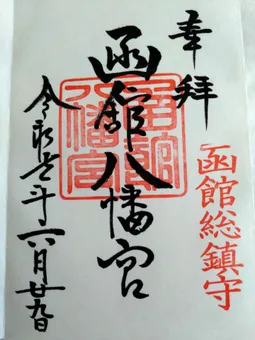 奉拝
函館総鎮守
函館八幡宮
令和元年六月廿九日
函館八幡宮